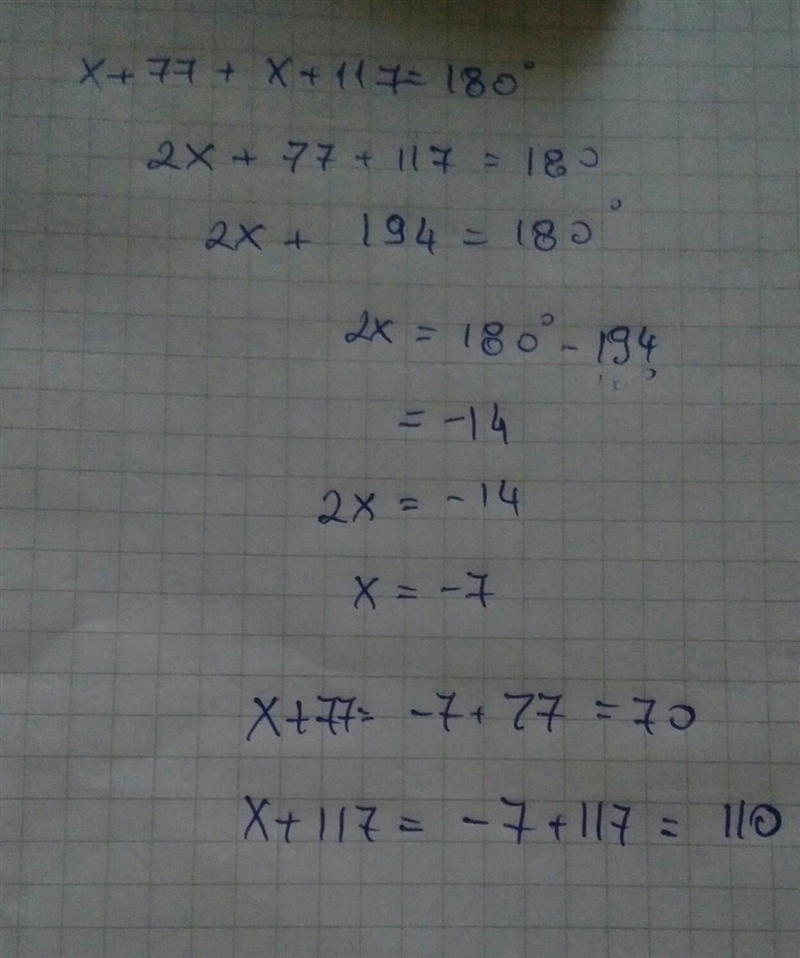 x+77 + x+117= 180°
2x + 77 + 117 = 180
2x + 194 = 180°
2x = 180° - 194
= -14
2x = -14
x = -7
x+77= -7+77 = 70
x+117 = -7+117 = 110